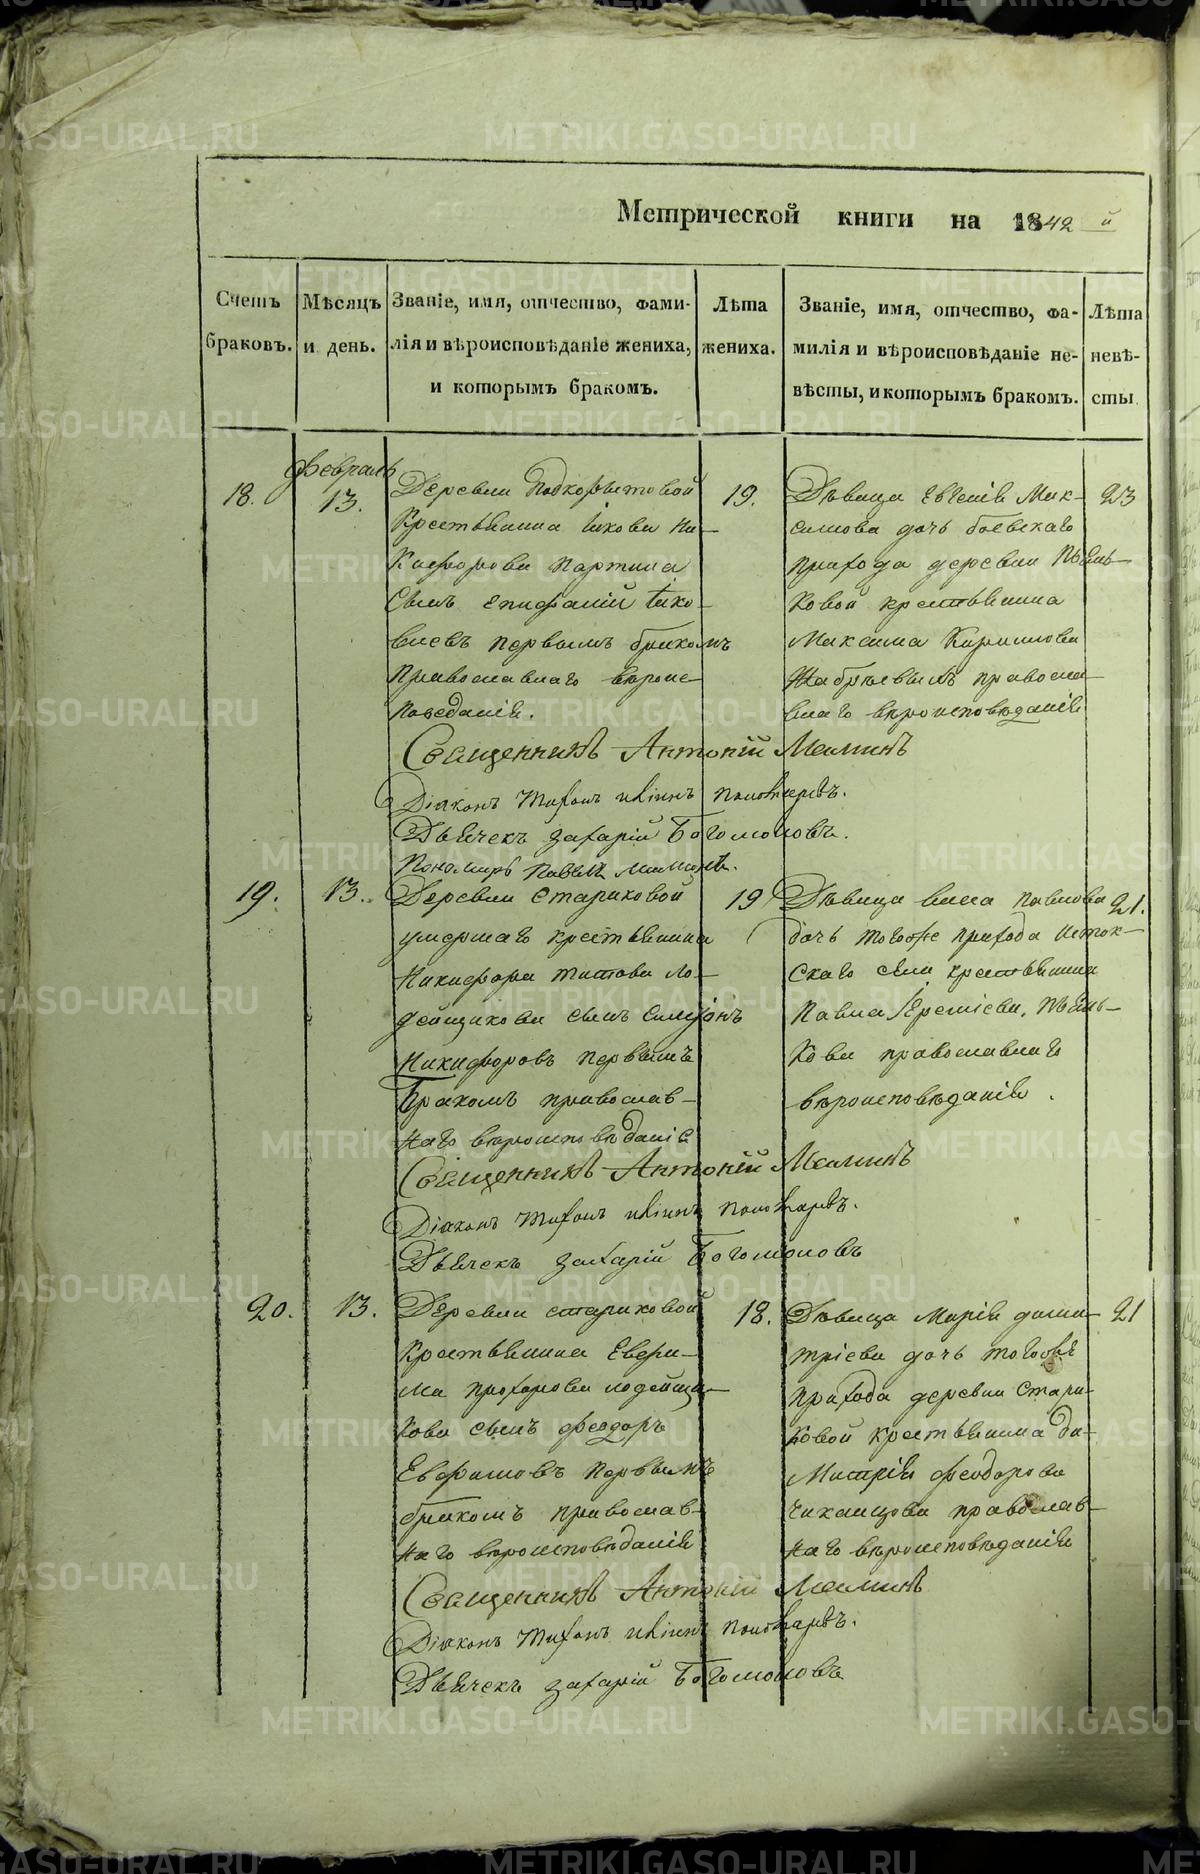 Метрической книги на 1842 й
Счетъ браковъ.
Мѣсяцъ и день.
Званіе, имя, отчество, фами-
лія и вѣроисповѣданіе жениха,
и которымъ бракомъ.
Лѣта
жениха.
Званіе, имя, отчество, фа-
милія и вѣроисповѣданіе не-
вѣсты, и которымъ бракомъ.
Лѣта
невѣ-
сты.
Февраль
18.
13.
Деревни Подкорытовой
Крестьянина Іякова Ни-
Кифорова Партина
Сынъ Епифаній Іяко-
влевъ первымъ бракомъ
Православнаго вѣроис-
поведанія.
19.
Дѣвица Евгенія Мак-
симова дочь боевскаго
прихода деревни Пьянь-
ковой крестьянина
Максима Кирилова
Жабрѣевымъ правосла-
внаго вѣроисповѣданія
23
Священникъ Антоній Маминъ
Діяконъ Тифонъ Пономаревъ.
Дьячекъ Захарій Богомоловъ.
Пономарь Павелъ Маминъ.
19.
13.
Деревни Стариковой
умершаго крестьянина
Никифора Титова Ло-
дейщикова сынъ Симеонъ
Никифоровъ первымъ
Бракомъ православ-
наго вѣроисповѣданія
19
Дѣвица Анна Павлова
дочь тогоже прихода Исток-
скаго села крестьянина
Павла Іеремѣева, Пьянь-
Кова православнаго
вѣроисповѣданія.
21.
Священникъ Антоній Маминъ
Діяконъ Тифонъ Пономаревъ.
Дьячекъ Захарій Богомоловъ
20.
13.
Деревни Стариковой
Крестьянина Евфи-
ма Прохорова лодейщи-
кова сынъ Феодоръ
Евфимовъ первымъ
бракомъ православ-
наго вѣроисповѣданія
18.
Дѣвица Марія дими-
тріева дочь тогоже
прихода деревни Стари-
ковой крестьянина Ди-
митрія Феодорова
Чиканцова православ-
наго вѣроисповѣданія
21
Священникъ Антоній Маминъ
Діяконъ Тифонъ Пономаревъ.
Дьячекъ Захарій Богомоловъ
METRIKI.GASO-URAL.RU